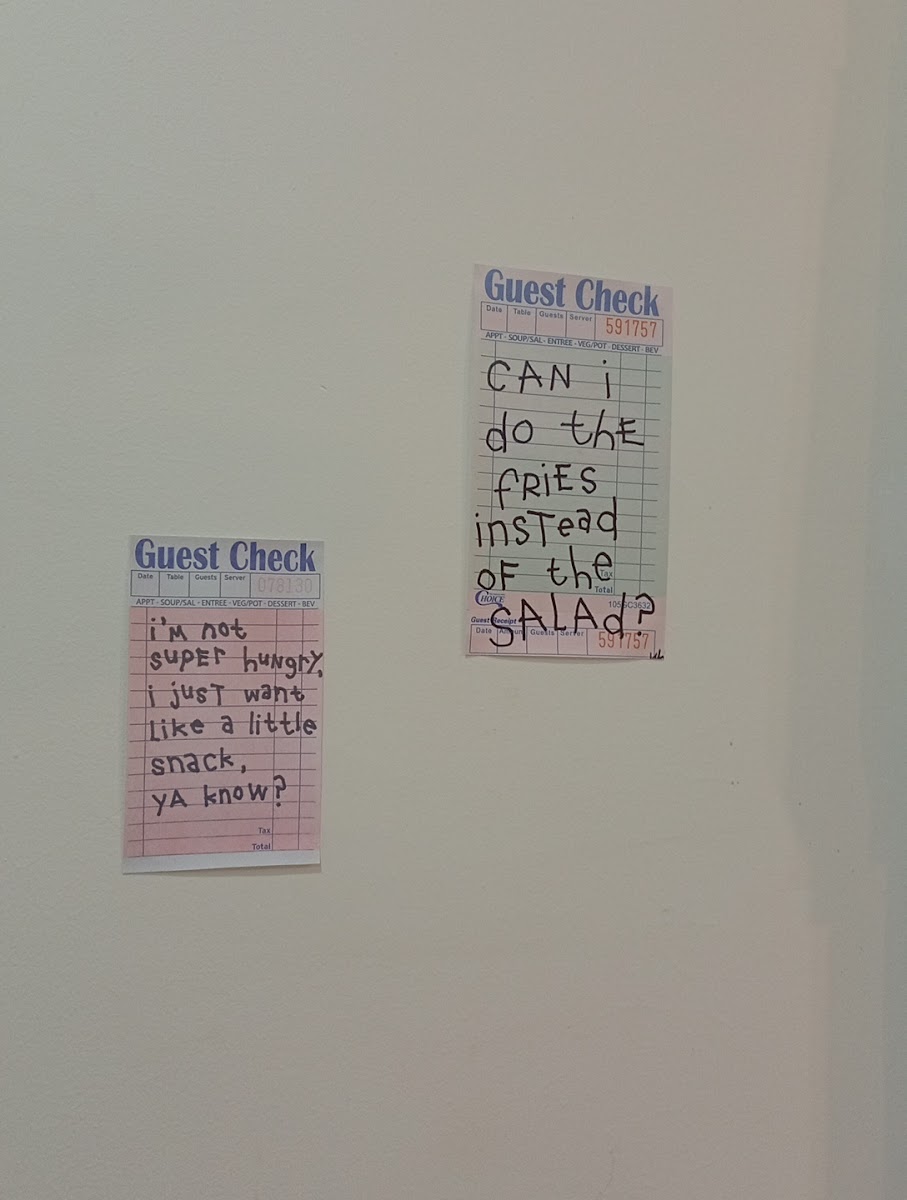 Guest Check
Date Table Guests Server 078130
APPT - SOUP/SAL - ENTREE - VEG/POT - DESSERT - BEV
i'M not
SUPER hUNgrY,
i jUST want
Like a little
snack,
YA know?
Tax
Total
Guest Check
Date Table Guests Server 591757
APPT - SOUP/SAL - ENTREE - VEG/POT - DESSERT - BEV
CAN i
do thE
fRiES
inSTead
OF the
Tax
Total
CHOICE
SALAd?
Guest Receipt
Date Amount Guests Server 591757